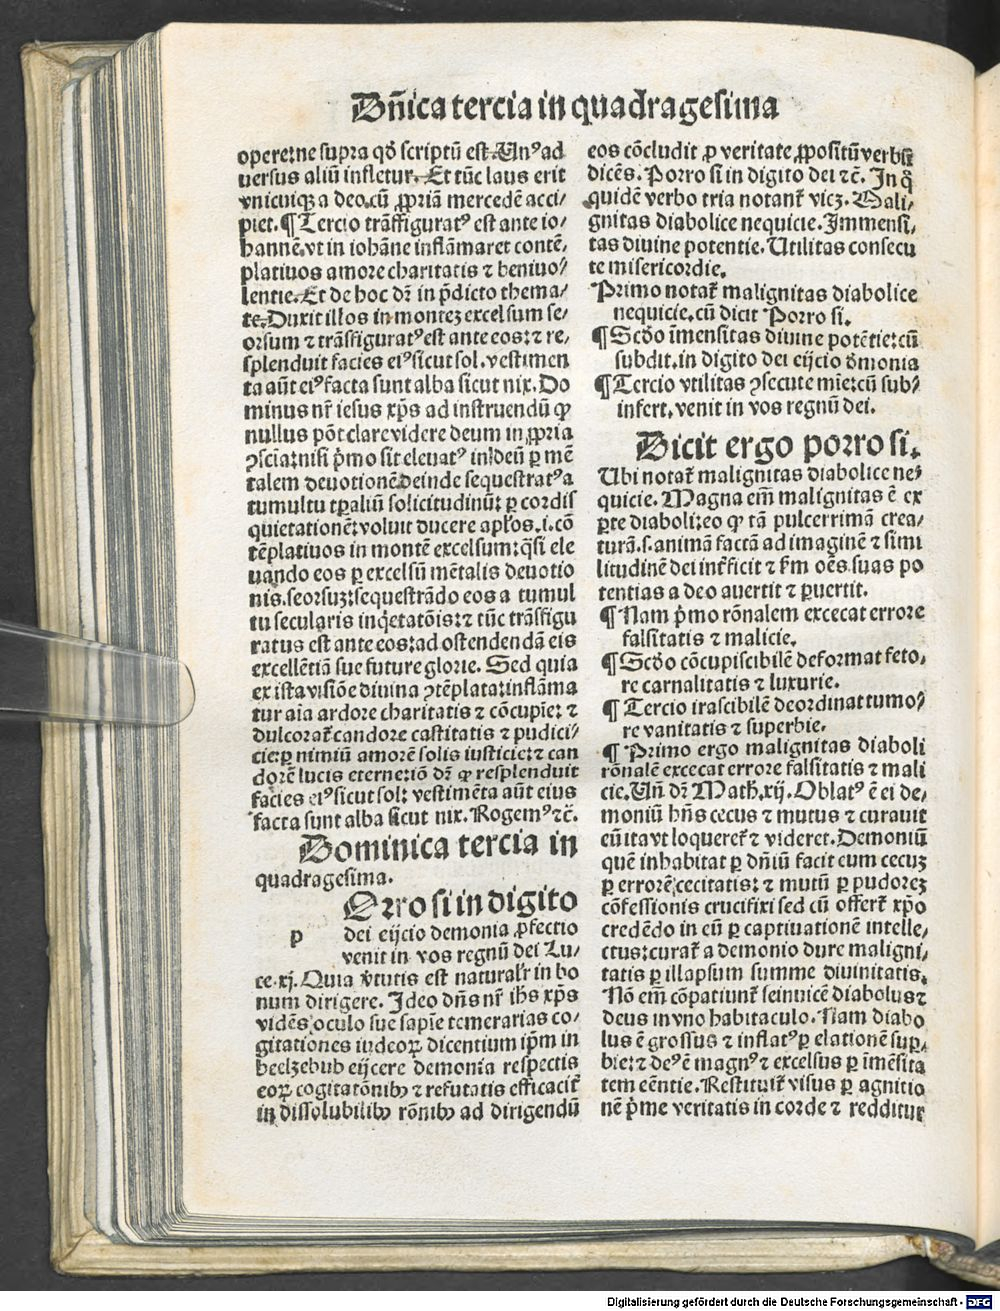 Dñica tercia in quadragesima
opere: ne supra qḋ scriptū est. Unꝰ ad
uersus aliū infletur. Et tūc laus erit
vnicuiqꝫ a deo. cū ꝓpriā mercedē acci-
piet. ¶ Tercio trāffiguratꝰ est ante io-
hannē. vt in iohāne inflāmaret contē-
platiuos amore charitatis ⁊ beniuo-
lentie. Et de hoc dr̄ in p̄dicto thema-
te. Duxit illos in montez excelsum se-
orsum ⁊ trāsfiguratꝰ est ante eos: ⁊ re-
splenduit facies eiꝰ sicut sol. vestimen
ta aūt eiꝰ facta sunt alba sicut nix. Do
minus nr̄ iesus xp̄s ad instruendū ꝙ
nullus pōt clare videre deum in ꝓpria
ꝯsciā: nisi p̄mo sit eleuatꝰ in deū ꝑ mē
talem deuotionē. deinde sequestratꝰ a
tumultu tꝑaliū solicitudinū: ꝑ cordis
quietationē: voluit ducere apl̄os .i. cō
tēplatiuos in montē excelsum: q̄si ele
uando eos ꝑ excelsū mētalis deuotio
nis. seorsuꝫ: sequestrādo eos a tumul
tu secularis inq̇etatōis: ⁊ tūc trāsfigu
ratus est ante eos: ad ostendendā eis
excellētiā sue future glorie. Sed quia
ex ista visiōe diuina ꝯtēplata: inflāma
tur aīa ardore charitatis ⁊ cōcupīe: ⁊
dulcorat̄ candore castitatis ⁊ pudici-
cie: ꝑ nimiū amorē solis iusticie: ⁊ can
dorē lucis eterne: iō dr̄ ꝙ resplenduit
facies eiꝰ sicut sol: vestimēta aūt eius
facta sunt alba sicut nix. Rogemꝰ ⁊c̄.
Dominica tercia in
quadragesima.
Orro si in digito
p dei eijcio demonia ꝓfectio
venit in vos regnū dei Lu-
ce .xj. Quia v̄tutis est naturalr̄ in bo
num dirigere. Ideo dn̄s nr̄ ihs xp̄s
vidēs oculo sue sapīe temerarias co-
gitationes iudeoꝝ dicentium ip̄m in
beelzebub eijcere demonia respectis
eoꝝ cogitatōnibꝫ ⁊ refutatis efficacit̄
in dissolubilibꝫ rōnibꝫ ad dirigendū
eos cōcludit ꝓ veritate ꝓpositū verbis
dicēs. Porro si in digito dei ⁊c̄. In q̊
quidē verbo tria notant̄ vicꝫ. Mali-
gnitas diabolice nequicie. Immensi-
tas diuine potentie. Utilitas consecu
te misericordie.
Primo notat̄ malignitas diabolice
nequicie. cū dicit Porro si.
¶ Scḋo īmensitas diuine potētie: cū
subdit. in digito dei eijcio d̄monia
¶ Tercio vtilitas ꝯsecute mīe: cū sub-
infert. venit in vos regnū dei.
Dicit ergo porro si.
Ubi notat̄ malignitas diabolice ne-
quicie. Magna em̄ malignitas ē ex
ꝑte diaboli: eo ꝙ tā pulcerrimā crea-
turā .s. animā factā ad imaginē ⁊ simi
litudinē dei int̄ficit ⁊ ẜm oēs suas po
tentias a deo auertit ⁊ ꝑuertit.
¶ Nam p̄mo rōnalem excecat errore
falsitatis ⁊ malicie.
¶ Scḋo cōcupiscibilē deformat feto-
re carnalitatis ⁊ luxurie.
¶ Tercio irascibilē deordinat tumo-
re vanitatis ⁊ superbie.
¶ Primo ergo malignitas diaboli
rōnalē excecat errore falsitatis ⁊ mali
cie. Un̄ dr̄ Math̄. xij. Oblatꝰ ē ei de-
moniū hn̄s cecus ⁊ mutus ⁊ curauit
eū ita vt loqueret̄ ⁊ videret. Demoniū
quē inhabitat ꝑ dn̄iū facit eum cecuꝫ
ꝑ errorē cecitatis: ⁊ mutū ꝑ pudoreꝫ
cōfessionis crucifixi sed cū offert̄ xp̄o
credēdo in eū ꝑ captiuationē intelle-
ctus: curat̄ a demonio dure maligni-
tatis ꝑ illapsum summe diuinitatis.
Nō em̄ cōpatiunt̄ seinuicē diabolus ⁊
deus in vno habitaculo. Nam diabo
lus ē grossus ⁊ inflatꝰ ꝑ elationē suꝑ-
bie: ⁊ deꝰ ē magnꝰ ⁊ excelsus ꝑ īmēsita
tem eēntie. Restituit̄ visus ꝑ agnitio
nē p̄me veritatis in corde ⁊ redditur
Digitalisierung gefördert durch die Deutsche Forschungsgemeinschaft - DFG